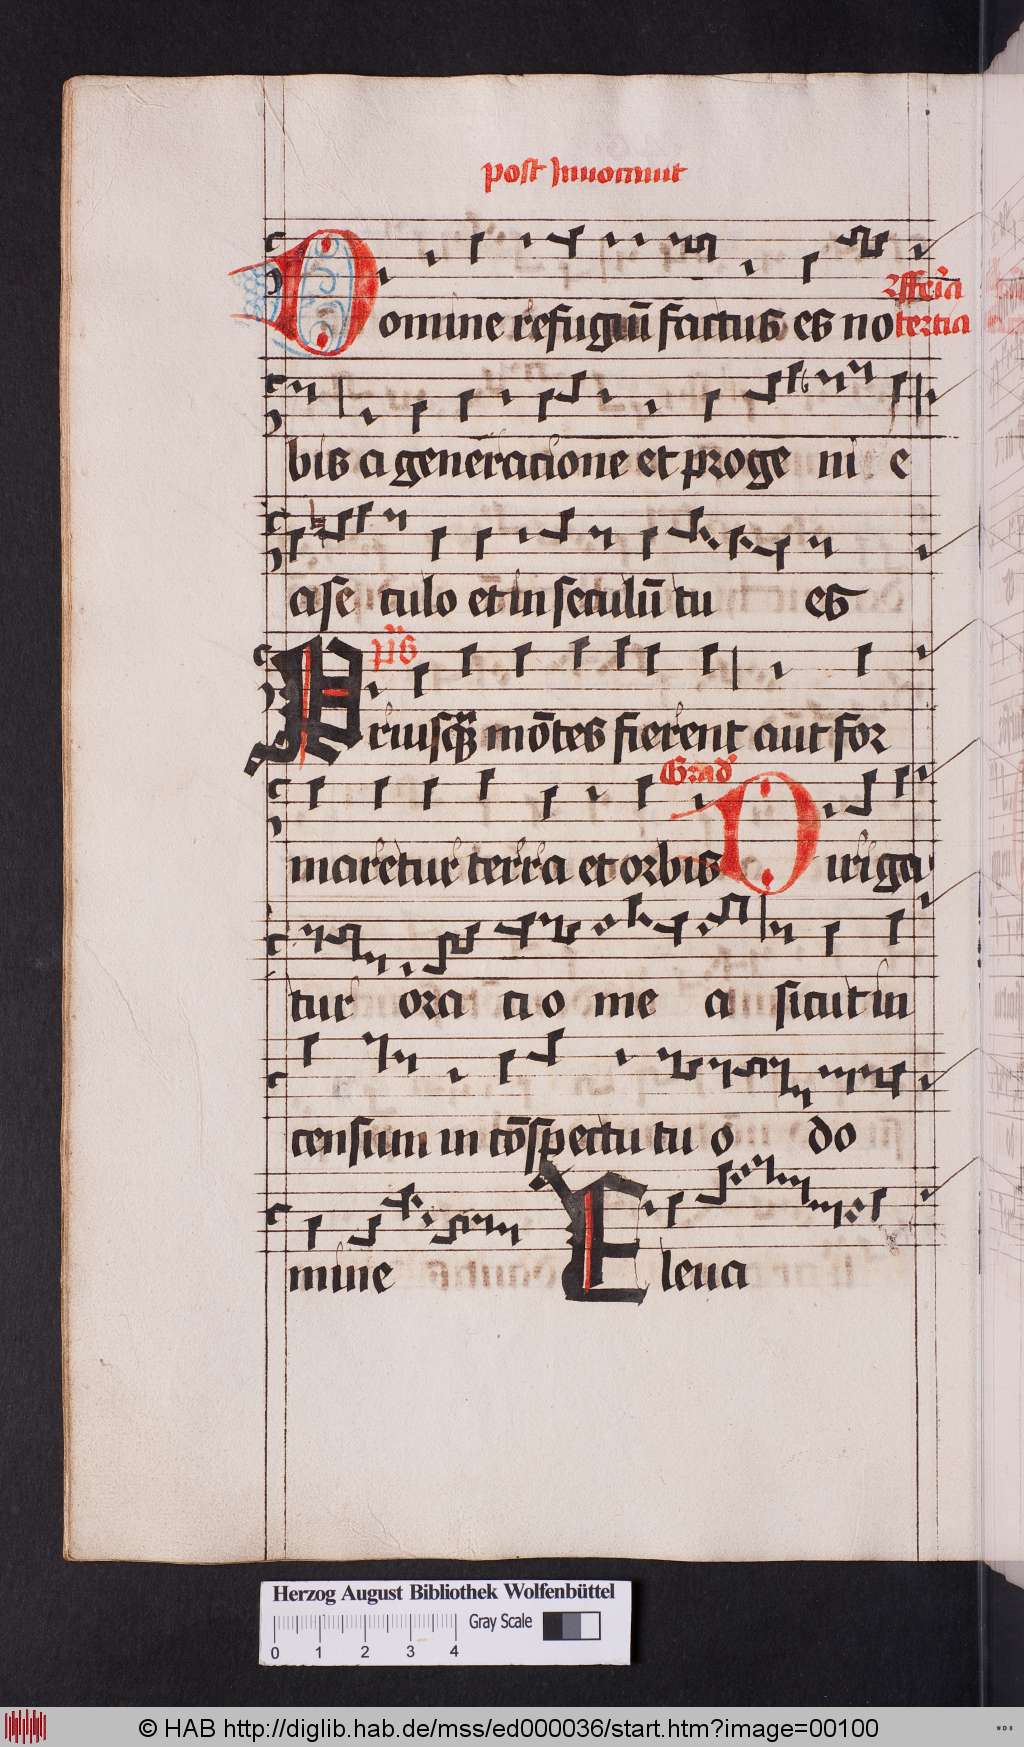 post Inuocauit
Domine refugiū factus es no
fferia
tertia
bis a generacione et proge ni e
a se culo et in seculū tu es
p̄s
Priusq̄ mōtes fierent aut for
Grad
maretur terra et orbis Diriga
tur ora cio me a sicut in
censum in cōspectu tu o do
mine Eleua
Herzog August Bibliothek Wolfenbüttel
Gray Scale
0 1 2 3 4
© HAB http://diglib.hab.de/mss/ed000036/start.htm?image=00100